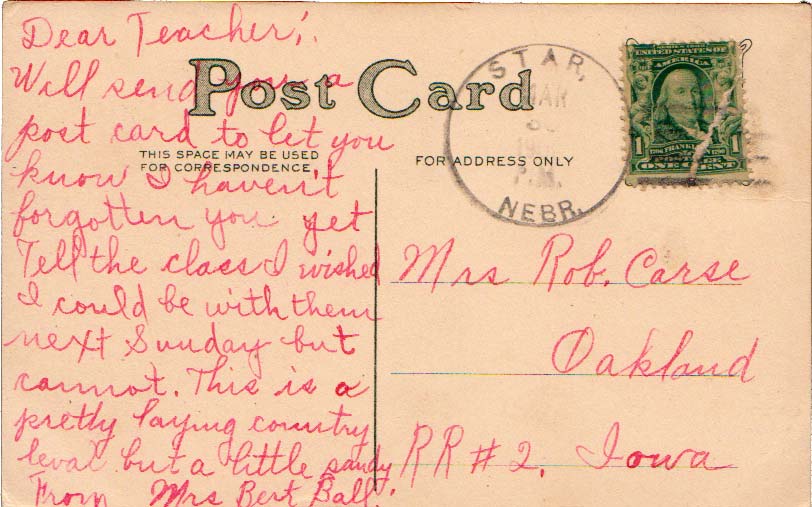 Dear Teacher;.
Will send you a
post card to let you
know I haven't
forgotten you yet
Tell the class I wished
I could be with them
next Sunday but
cannot. This is a
pretty laying country
leval but a little sandy
From Mrs Bert Ball.
Post Card
THIS SPACE MAY BE USED
FOR CORRESPONDENCE
FOR ADDRESS ONLY
STAR,
MAR
P.M.
NEBR.
SERIES 1902
UNITED STATES OF
AMERICA
1 FRANKLIN 1
ONE CENT
Mrs Rob. Carse
Oakland
RR #2. Iowa